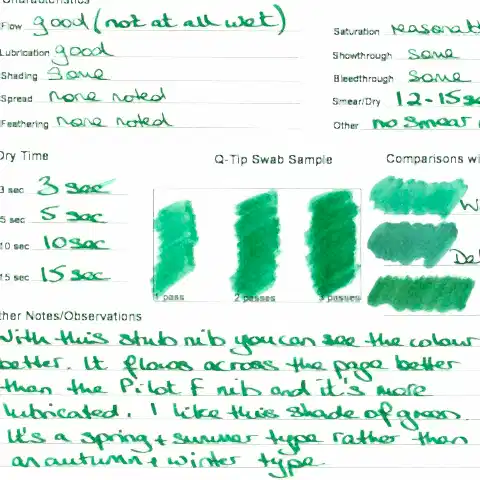 Characteristics
Flow good (not at all wet)
Lubrication good
Shading Some
Spread none noted
Feathering none noted
Saturation reasonab
Showthrough some
Bleedthrough some
Smear/Dry 12-15se
Other no smear
Dry Time
3 sec 3 sec
5 sec 5 sec
10 sec 10sec
15 sec 15 sec
Q-Tip Swab Sample
1 pass
2 passes
3 passes
Comparisons wi
W
De
ther Notes/Observations
With this stub nib you can see the colour
better. It flows across the page better
than the Pilot F nib and it's more
lubricated. I like this shade of green.
It's a spring + summer type rather than
an autumn + winter type.